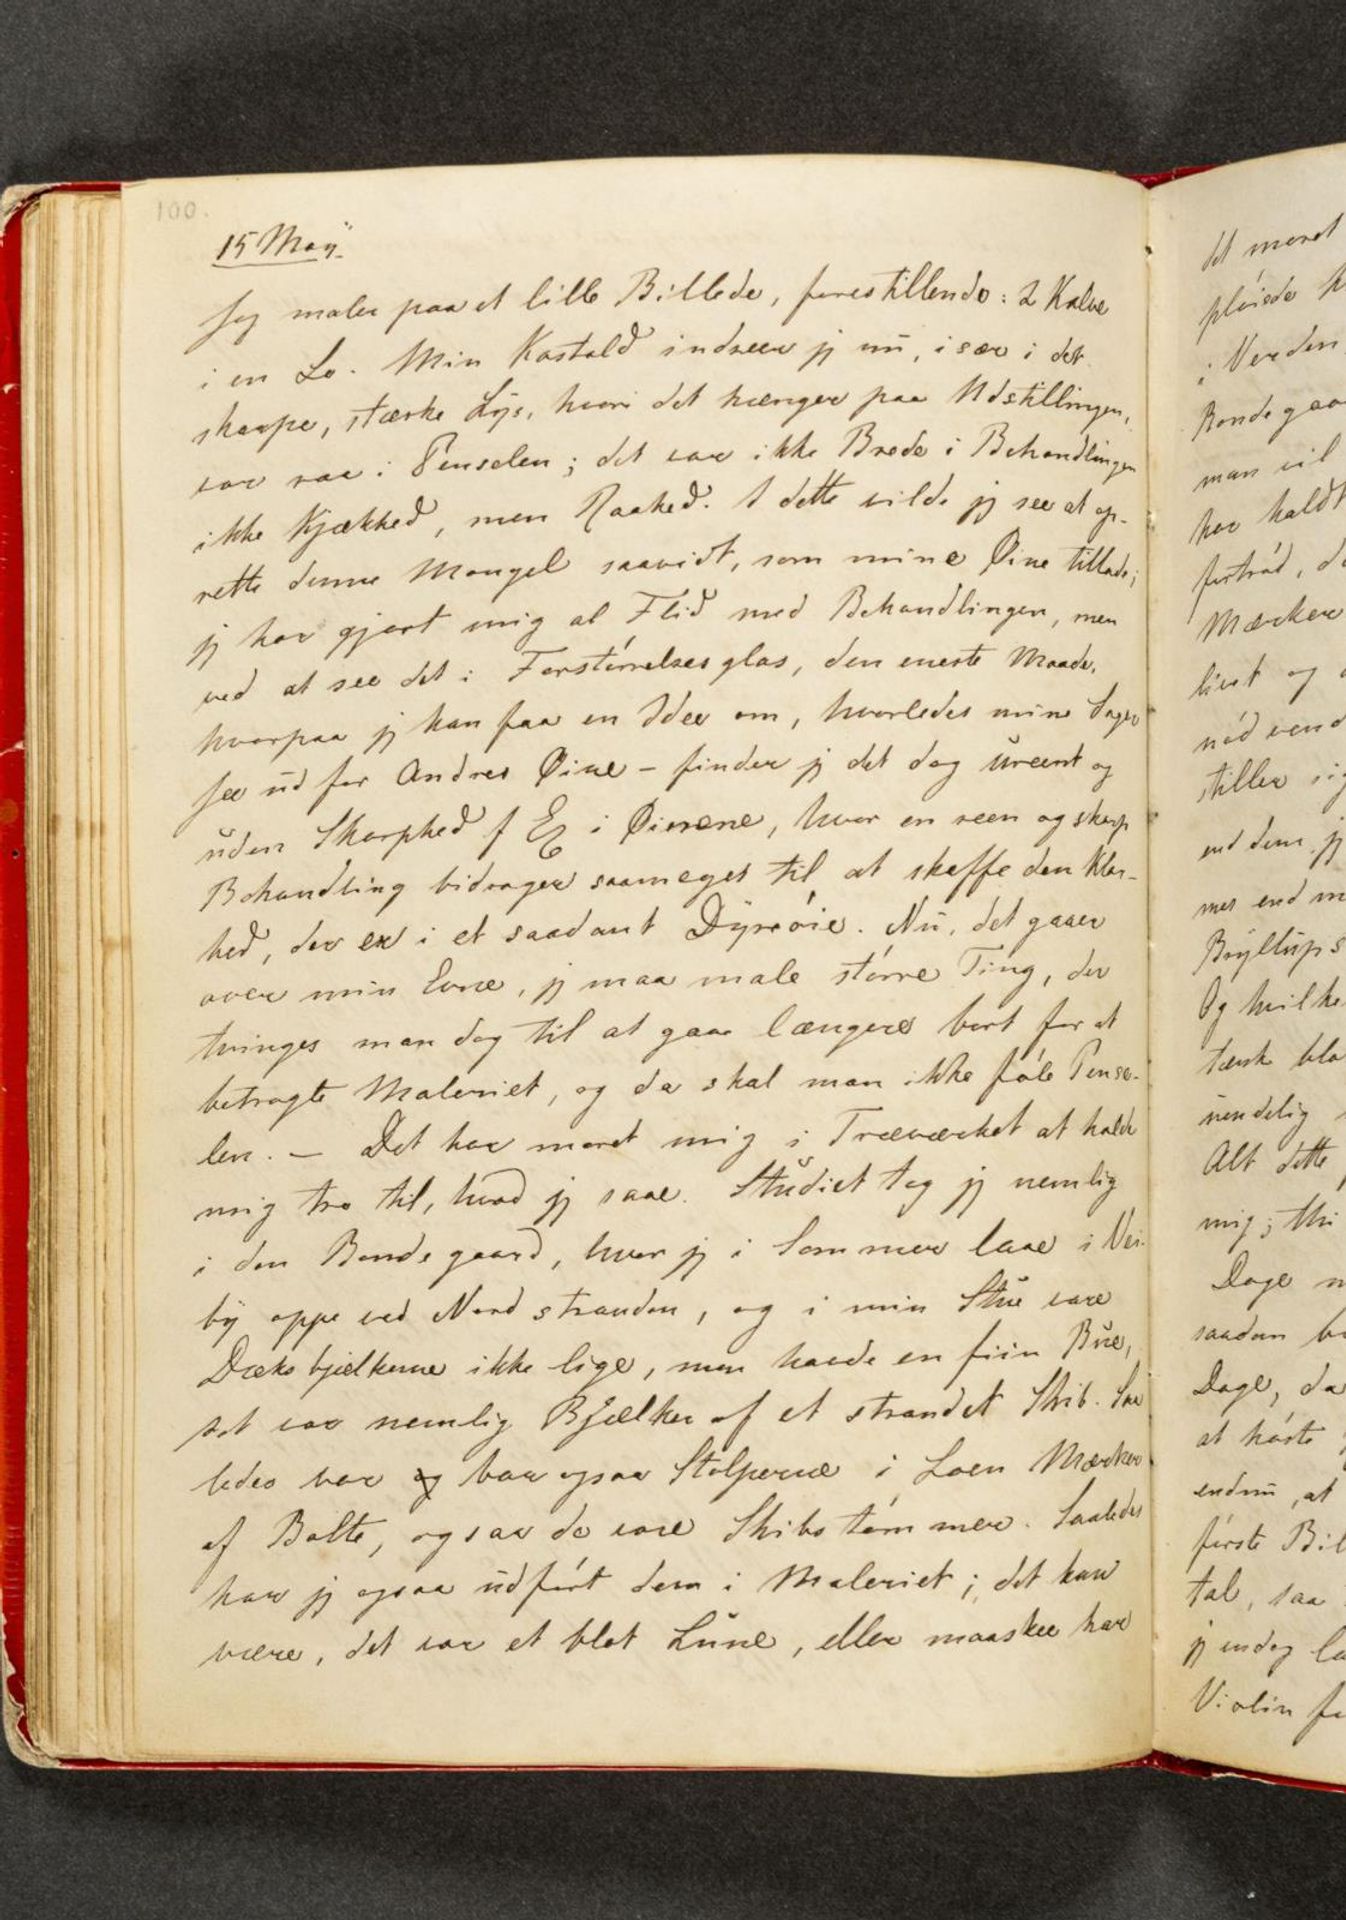 100.
15 Maÿ.
Jeg maler paa et lille Billede, forestillende: 2 Kalve
i en Lo. Min Kostald indseer jeg nu, især i det
skarpe, stærke Lys, hvori det hænger paa Udstillingen,
var raa i Penselen; det var ikke Brede i Behandlingen
ikke Kjækhed, men Raahed. I dette vilde jeg see at op-
rette denne Mangel saavidt, som mine Øine tillade;
jeg har gjort mig al Flid med Behandlingen, men
ved at see det i Forstørrelsesglas, den eneste Maade,
hvorpaa jeg kan faa en Idee om, hvorledes mine Sager
see ud for Andres Øine – finder jeg det dog ureent og
uden Skarphed f Ex i Øinene, hvor en reen og skarp
Behandling bidrager saameget til at skaffe den Klar-
hed, der er i et saadant Dyreøie. Nu, det gaaer
over min Evne, jeg maa male større Ting, der
tvinges man dog til at gaae længere bort for at
betragte Maleriet, og da skal man ikke føle Pense-
len. – Det har moret mig i Træværket at holde
mig tro til, hvad jeg saae. Studiet tog jeg nemlig
i den Bondegaard, hvor jeg i Sommer laae i Vei-
by oppe ved Nordstranden, og i min Stue vare
Dæksbjælkerne ikke lige, men havde en fiin Bue,
det var nemlig Bjælker af et strandet Skib. Saa
ledes var og bar ogsaa Stolperne i Loen Mærker
af Bolte, ogsaa de vare Skibstømmer. Saaledes
har jeg ogsaa udført dem i Maleriet; det kan
være, det var et blot Lune, eller maaskee har
det moret
pleiede
i Verden
Bondegaa
man vil
har holdt
fortrød,
Mærker
livet og
nødvend
stiller sig
end dem jeg
mer end
Bryllups
Og hvilke
tænk
uendelig
Alt dette
mig; thi
Dage
saadan
Dage, da
at høste
endnu, at
første Bil
tal, saa
jeg endog
Violin